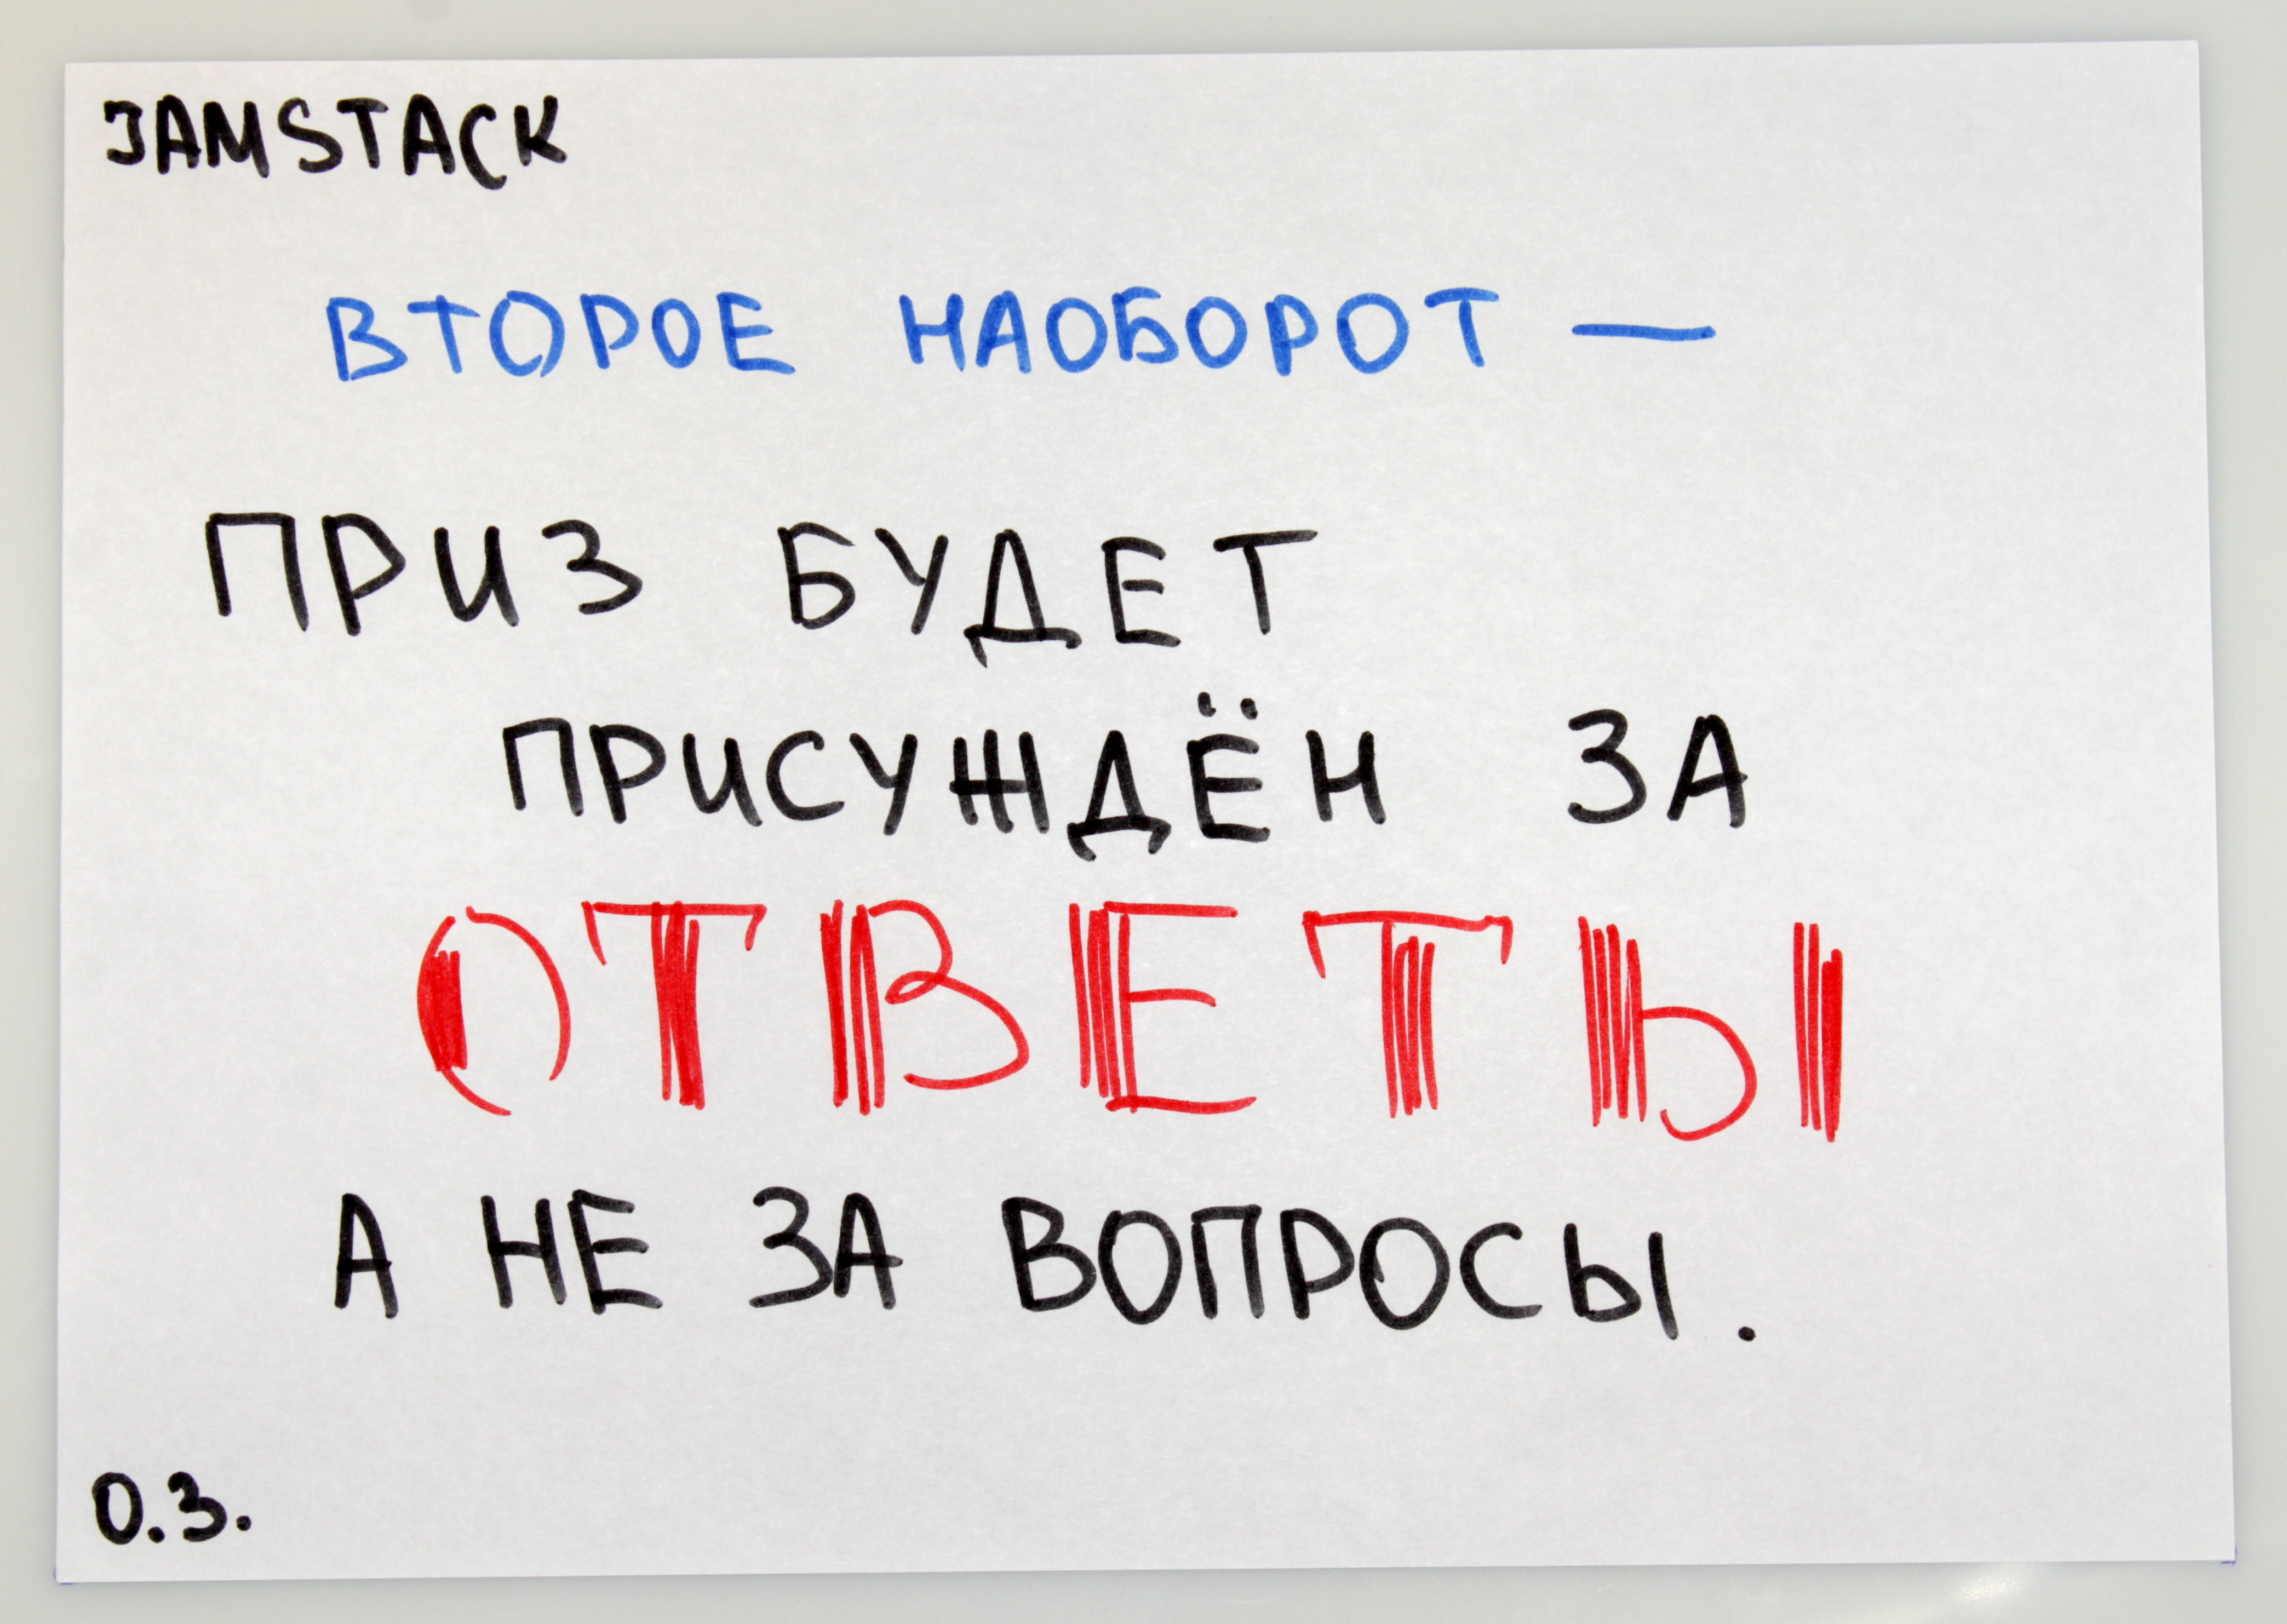 JAMSTACK
ВТОРОЕ НАОБОРОТ —
ПРИЗ БУДЕТ
ПРИСУЖДЁН ЗА
ОТВЕТЫ
А НЕ ЗА ВОПРОСЫ.
О.З.